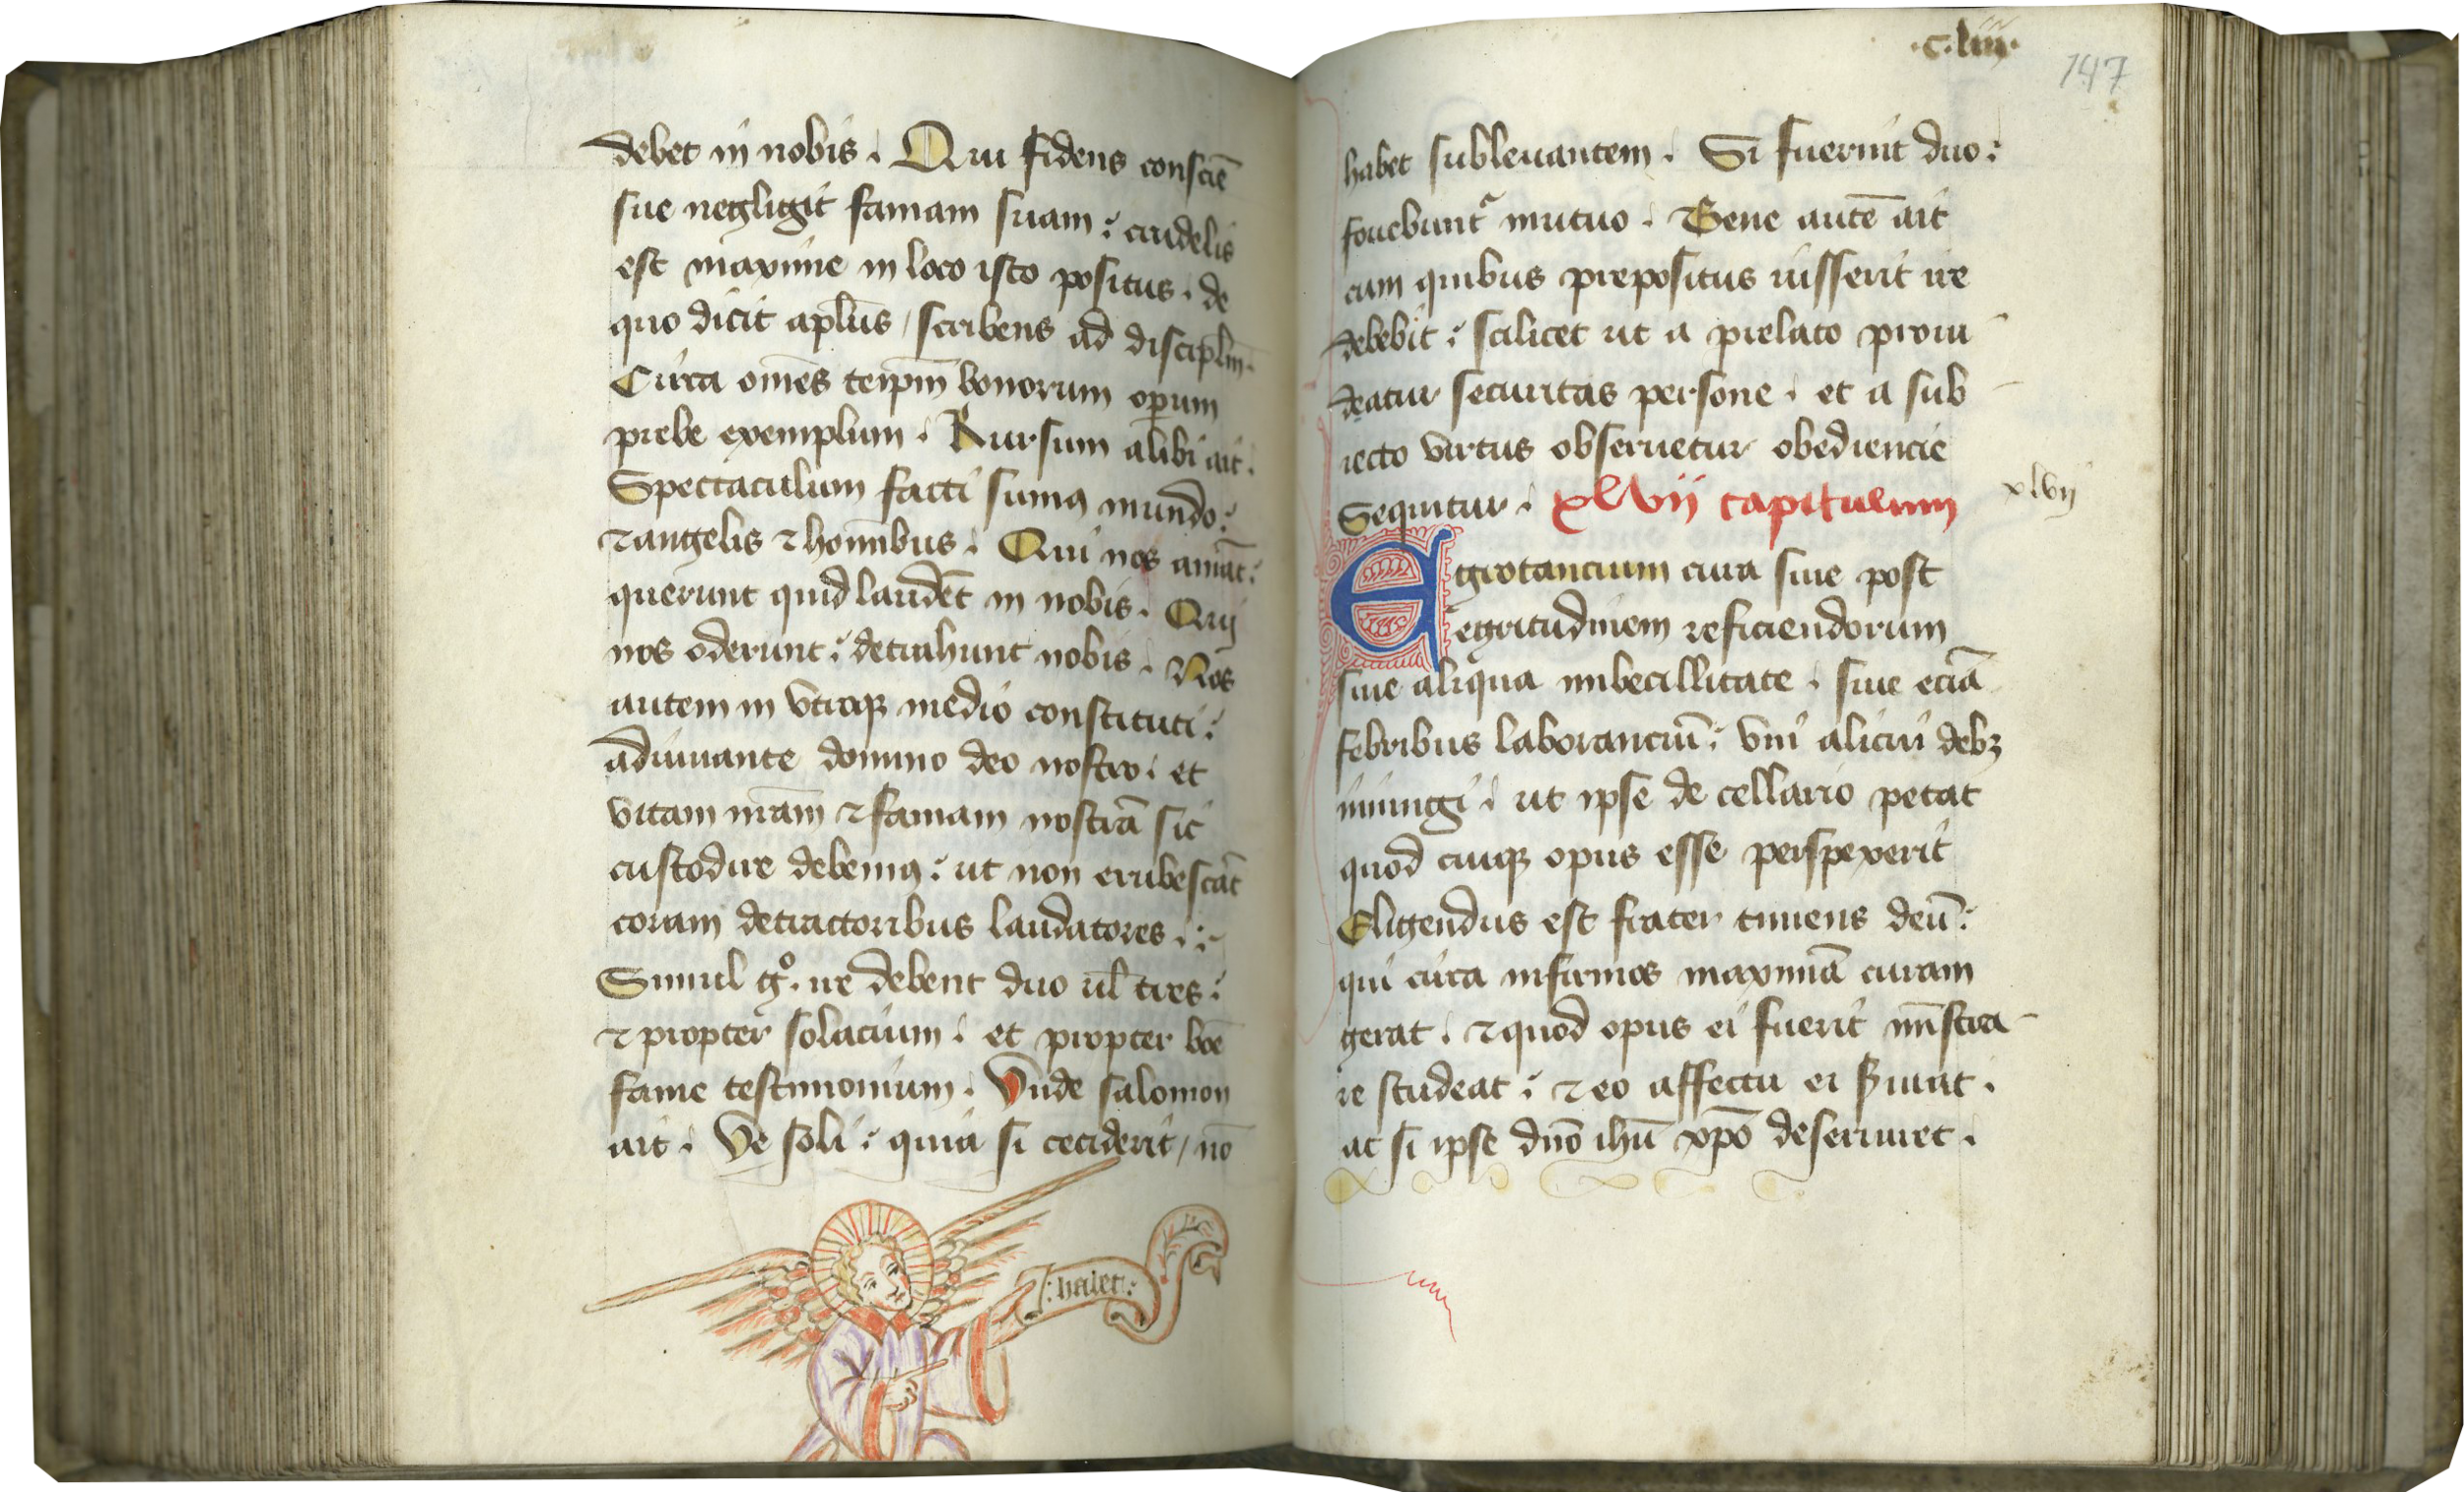 debet in nobis. Qui fidens consciē
sue negligit famam suam: crudelis
est maxime in loco isto positus. de
quo dicit aplūs / scribens ad disciplm̄.
Circa om̄es teipm̄ bonorum operum
prebe exemplum. Rursum alibi ait.
Spectaculum facti sumꝰ mundo:
⁊ angelis ⁊ homībus. Qui nos amāt:
querunt quid laudēt in nobis. Qui
nos oderunt: detrahunt nobis. Nos
autem in vtroqꝫ medio constituti:
adiuuante domino deo nostro. et
vitam nrām ⁊ famam nostrā sic
custodire debemꝰ: ut non erubescāt
coram detractoribus laudatores.:-
Simul gº. ire debent duo ul̄ tres:
⁊ propter solacium. et propter boē
fame testimonium. Vnde salomon
ait. Ve soli: quia si ceciderit / nō
·c·liii·
147
habet subleuantem. Si fuerint duo:
fouebuntᷣ mutuo. Bene autē ait
cum quibus prepositus iusserit ire
debebit: scilicet ut a prelato proui
deatur securitas persone. et a sub
iecto virtus obseruetur obediencie
Sequitur. xlvii capitulum
xlvij
Egrotancium cura siue post
egritudinem reficiendorum
siue aliqua imbecillitate. siue eciā
febribus laboranciū: vni alicui debꝫ
iniungi. ut ipse de cellario petat
quod cuiqꝫ opus esse perspexerit
Eligendus est frater timens deū:
qui circa infirmos maximā curam
gerat. ⁊ quod opus ei fuerit mīstra
re studeat: ⁊ eo affectu ei ẜuiat.
ac si ipse dn̄o ihū xp̄o deseruiret.